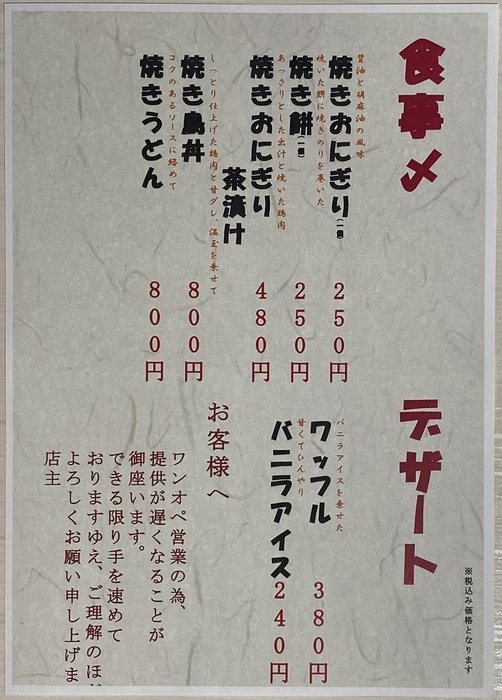 食事〆
醤油と胡麻油の風味
焼きおにぎり(一個)
250円
焼いた餅に焼きのりを巻いた
焼き餅(一個)
250円
あっさりとした出汁と焼いた鶏肉
焼きおにぎり
茶漬け
480円
しっとり仕上げた鶏肉と甘ダレ、温玉を乗せて
焼き鳥丼
800円
コクのあるソースに絡めて
焼きうどん
800円
デザート
バニラアイスを乗せた
ワッフル
380円
甘くてひんやり
バニラアイス
240円
※税込み価格となります
お客様へ
ワンオペ営業の為、
提供が遅くなることが
御座います。
できる限り手を速めて
おりますゆえ、ご理解のほど
よろしくお願い申し上げま
店主